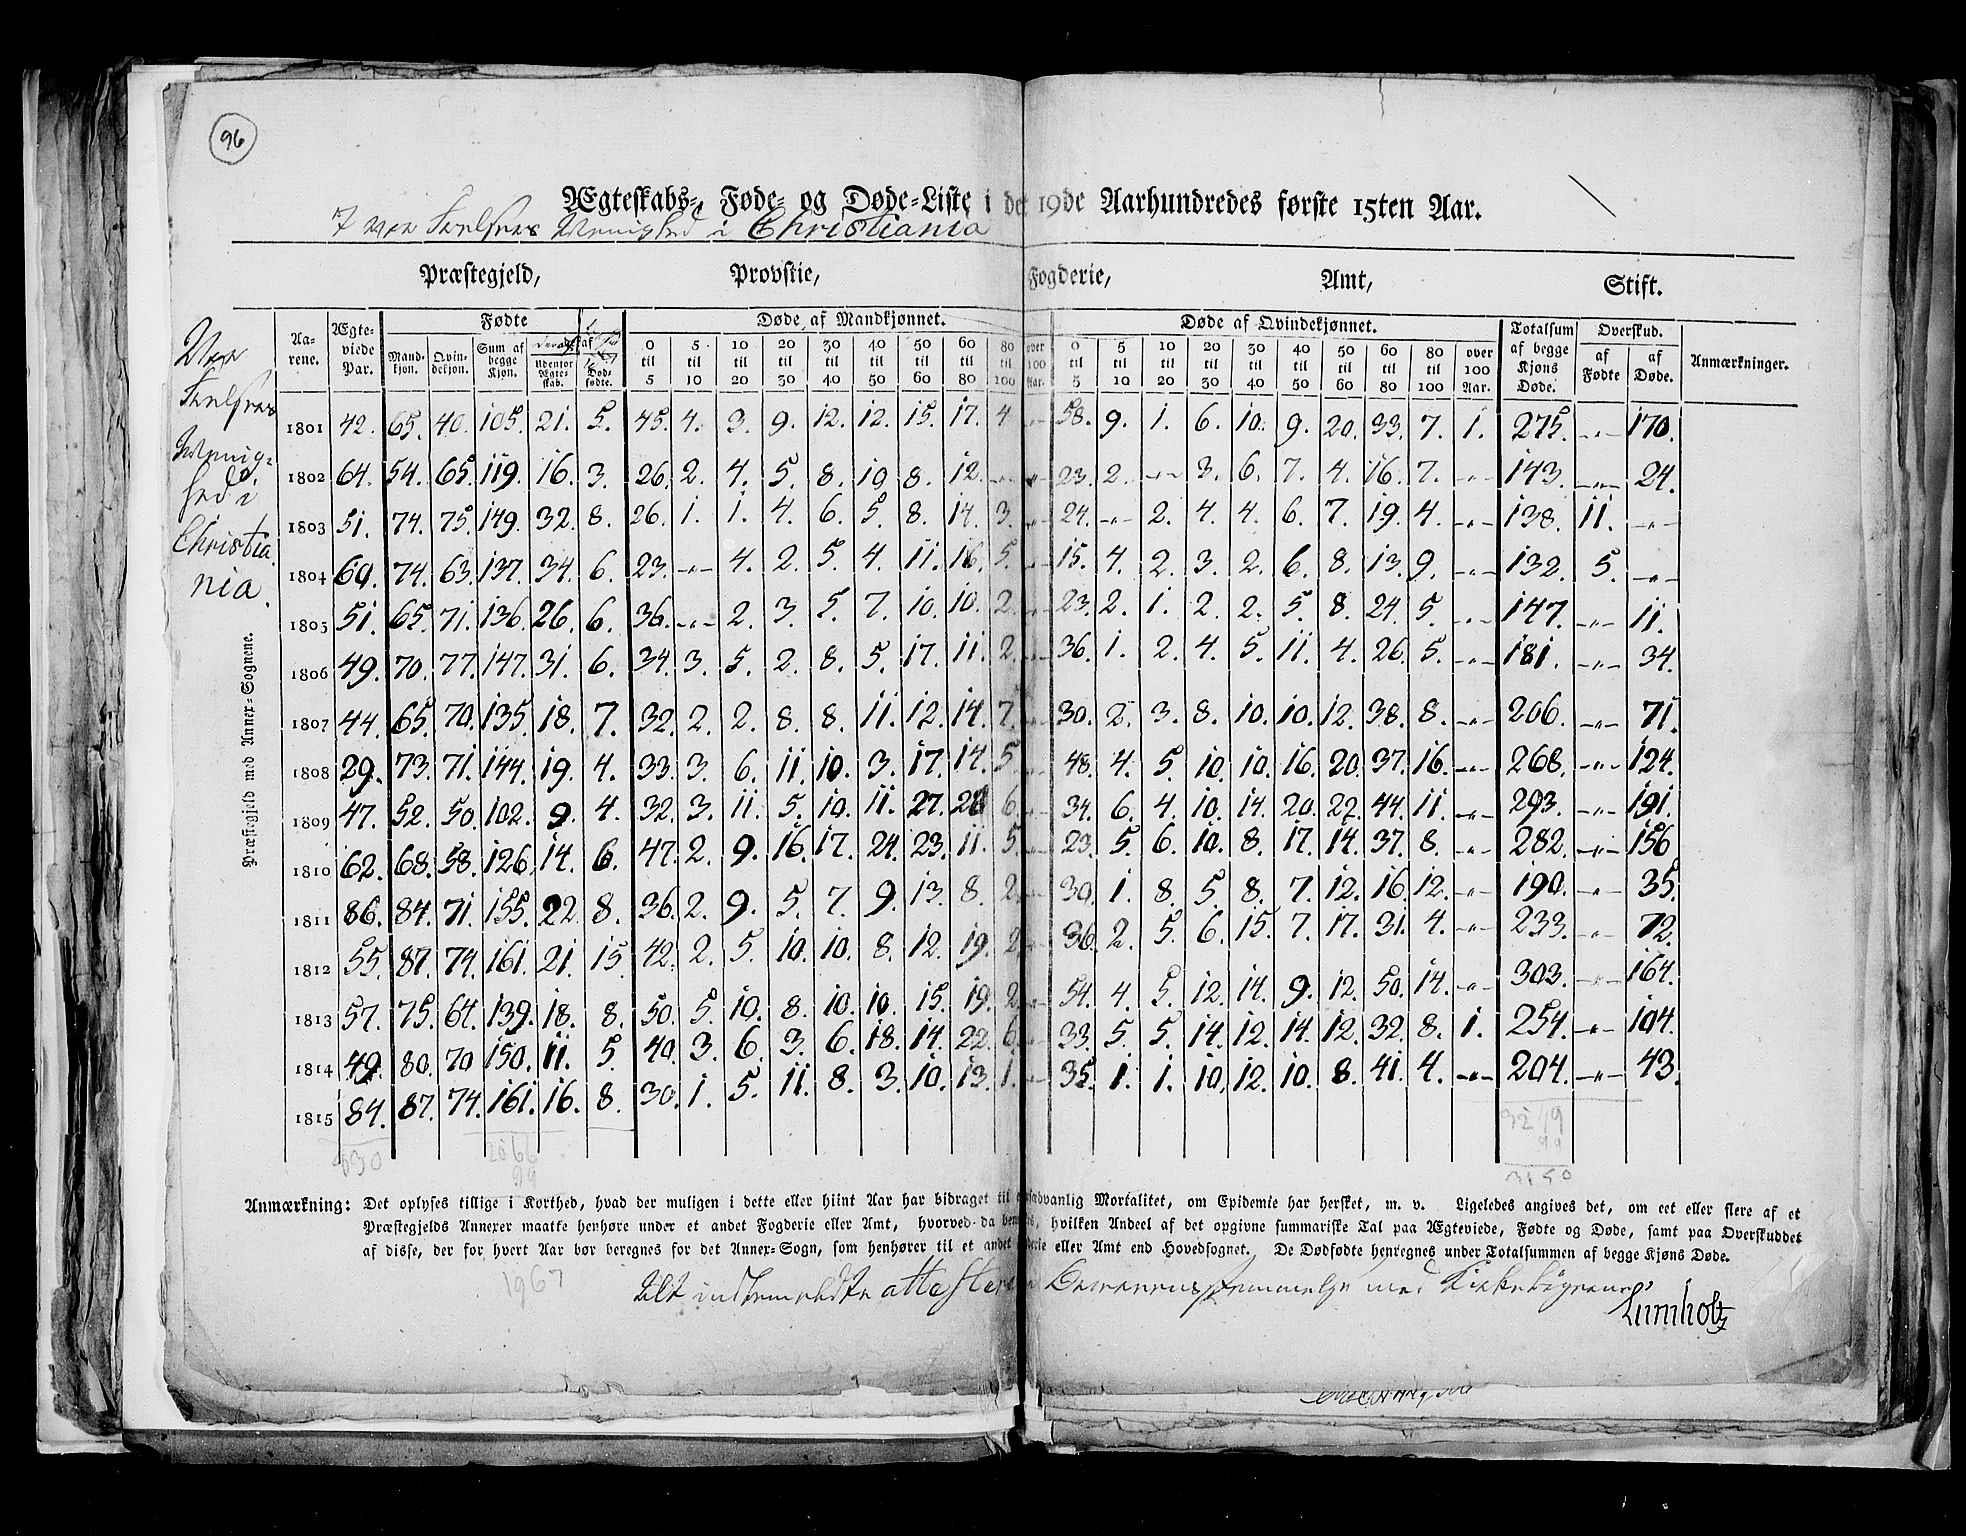 96
Ægteskabs-, Føde- og Døde-Liste i det 19de Aarhundredes første 15ten Aar.
Vor Frelsers Menighed i Christiania
Præstegjeld, Provstie, Fogderie, Amt, Stift.
Vor
Frelsers
Menig-
hed i
Christia
nia.
Præstegjeld med Annex-Sognene.
Aarene. | Ægteviede Par. | Fødte | Døde af Mandkjønnet. | Døde af Qvindekjønnet. | Totalsum af begge Kjøns Døde. | Overskud. | Anmærkninger.
Mandkjøn. | Qvindekjøn. | Sum af begge Kjøn. | Udenfor Ægteskab. | Dødfødte. | 0 til 5 | 5 til 10 | 10 til 20 | 20 til 30 | 30 til 40 | 40 til 50 | 50 til 60 | 60 til 80 | 80 til 100 | over 100 Aar. | 0 til 5 | 5 til 10 | 10 til 20 | 20 til 30 | 30 til 40 | 40 til 50 | 50 til 60 | 60 til 80 | 80 til 100 | over 100 Aar. | af Fødte | af Døde.
1801 42. 65. 40. 105. 21. 5. 45. 4. 3. 9. 12. 12. 15. 17. 4 -„- 58. 9. 1. 6. 10. 9. 20. 33. 7. 1. 275. -„- 170.
1802 64. 54. 65. 119. 16. 3. 26. 2. 4. 5. 8. 10 8. 12. -„- -„- 23. 2. -„- 3. 6. 7. 4. 16. 7. -„- 143. -„- 24.
1803 51. 74. 75. 149. 32. 8. 26. 1. 1. 4. 6. 5. 8. 14. 3. -„- 24. -„- 2. 4. 4. 6. 7. 19. 4. -„- 138. 11. -„-
1804 60. 74. 63. 137. 34. 6. 23. -„- 4. 2. 5. 4. 11. 16. 5. -„- 15. 4. 2. 3. 2. 6. 8. 13. 9. -„- 132. 5. -„-
1805 51. 65. 71. 136. 26. 6. 36. -„- 2. 3. 5. 7. 10. 10. 2. -„- 23. 2. 1. 2. 2. 5. 8. 24. 5. -„- 147. -„- 11.
1806 49. 70. 77. 147. 31. 6. 34. 3. 5. 2. 8. 5. 17. 11. 2. -„- 36. 1. 2. 4. 5. 11. 4. 26. 5. -„- 181. -„- 34.
1807 44. 65. 70. 135. 18. 7. 32. 2. 2. 8. 8. 11. 12. 14. 7. -„- 30. 2. 3. 8. 10. 10. 12. 38. 8. -„- 206. -„- 71.
1808 29. 73. 71. 144. 19. 4. 33. 3. 6. 11. 10. 3. 17. 14. 5. -„- 48. 4. 5. 10. 10. 16. 20. 37. 16. -„- 268. -„- 124.
1809 47. 52. 50. 102. 9. 4. 32. 3. 11. 5. 10. 11. 27. 20 6. -„- 34. 6. 4. 10. 14. 20. 22. 44. 11. -„- 293. -„- 191.
1810 62. 68. 58. 126. 14. 6. 47. 2. 9. 16. 17. 24. 23. 11. 5. -„- 23. 5. 6. 10. 8. 17. 14. 37. 8. -„- 282. -„- 156
1811 86. 84. 71. 155. 22. 8. 36. 2. 9. 5. 7. 9. 13. 8. 2. -„- 30. 1. 8. 5. 8. 7. 12. 16. 12. -„- 190. -„- 35.
1812 55. 87. 74. 161. 21. 15. 42. 2. 5. 10. 10. 8. 12. 19. 2. -„- 36. 2. 5. 6. 15. 7. 17. 31. 4. -„- 233. -„- 72.
1813 57. 75. 64. 139. 18. 8. 50. 5. 10. 8. 10. 10. 15. 19. 2. -„- 54. 4. 5. 12. 14. 9. 12. 50. 14. -„- 303. -„- 164.
1814 49. 80. 70 150. 11. 5. 40. 3. 6. 3. 6. 18. 14. 22. 6. -„- 33. 5. 5. 14. 12. 14. 12. 32. 8. 1. 254. -„- 104.
1815 84. 87. 74. 161. 16. 8. 30. 1. 5. 11. 8. 3. 10. 13. 1. -„- 35. 1. 1. 10. 12. 10. 8. 41. 4. -„- 204. -„- 43.
830 2066 3249
99 99
3150
Anmærkning: Det oplyses tillige i Korthed, hvad der muligen i dette eller hiint Aar har bidraget til usædvanlig Mortalitet, om Epidemie har hersket, m. v. Ligeledes angives det, om eet eller flere af et
Præstegjelds Annexer maatte henhøre under et andet Fogderie eller Amt, hvorved da bemærkes, hvilken Andeel af det opgivne summariske Tal paa Ægteviede, Fødte og Døde, samt paa Overskuddet
af disse, der for hvert Aar bør beregnes for det Annex-Sogn, som henhører til et andet Fogderie eller Amt end Hovedsognet. De Dødfødte henregnes under Totalsummen af begge Kjøns Døde.
1967
Overeensstemmelse med Kirkebøgerne
Lumholtz